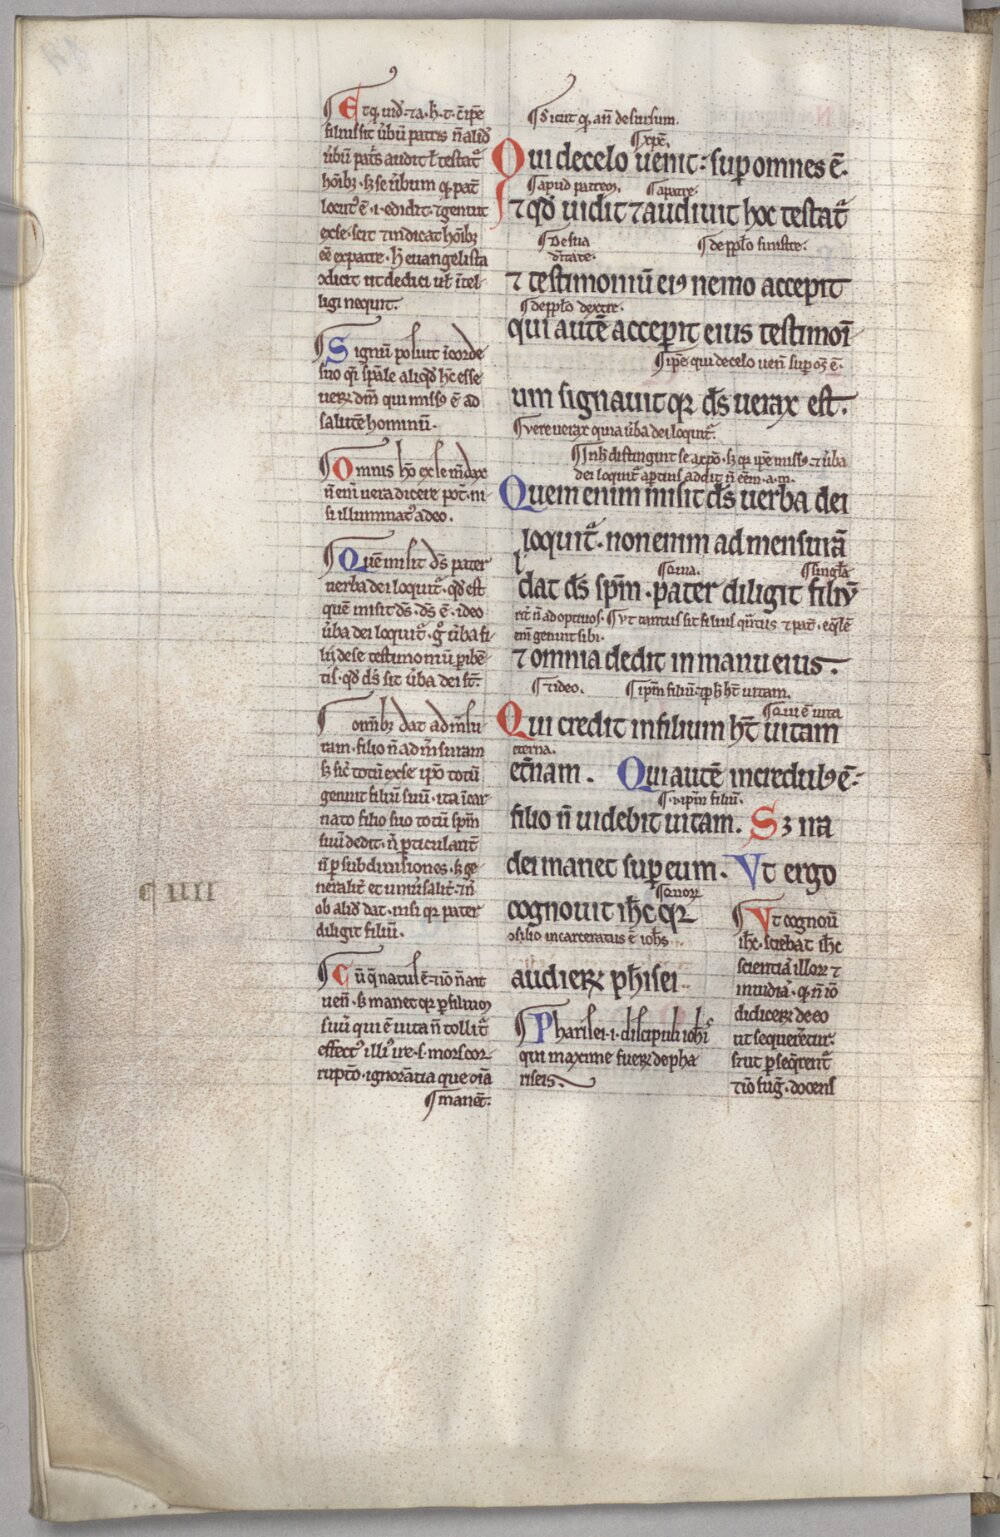 ¶ Et qd uid̄ ⁊ a. h. t. c̄ ip̄e
filius sit ūbū patris n̄ aliđ
ūbū pat̄s audit ł testat᷑
hōibꝫ. sꝫ se ūbum qđ pat̄
locut᷒ ē .i. edidit. ⁊ genuit
ex se. scit ⁊ indicat hōibꝫ
eē ex patre. h̄ euangelista
dicit ut dedici ul̄ intel
ligi nequit.
¶ Signū posuit ī corde
suo qͥ sp̄ale aliqđ h̄c esse
ueꝝ dm̄ qui miss᷒ ē ad
salutē hominū.
¶ Omnis hō ex se mdax
n̄ em̄ uera dicere pot̄. ni-
si illuminat᷒ a deo.
¶ Quē misit ds̄ pater
uerba dei loquit᷑. qđ est
quē misit ds̄. ds̄ ē. ideo
ūba dei loquit᷑. gͦ ūba fi-
lij de se testimoniū p̱ibē-
tis. qđ ds̄ sit ūba dei st̄.
¶ om̄ibꝫ dat ad m̄su
ram. filio n̄ ad m̄suram
sꝫ sic̄ totū ex se ip̄o totū
genuit filiū suū. ita īcar
nato filio suo totū sp̄m
suū dedit. n̄ p̱ticularit̄
n̄ p̱ subdiuisiones. sꝫ ge
neralit̄ et uniūsalit̄. ⁊ n̄
ob aliđ dat. nisi qꝛ pater
diligit filiū.
¶ Cū q̄ natus ē. iō n̄ ait
ueń. sꝫ manet qꝛ p̱ filium
suū qui ē uita n̄ tollit᷑
effect᷒ illi᷒ ire .s. mors cor
rupt̄o. ignorātia que oīa
¶ manēt.
¶ Sicut qđ an̄ desursum.
¶ xp̄c.
Qui de celo uenit: sup omnes ē.
¶ apud patrem. ¶ a patre.
⁊ qđ uidit ⁊ audiuit hoc testat᷑
¶ De sua ¶ de pp̱lo sinistre.
d̄itate.
⁊ testimoniū ei᷒ nemo accepit
¶ de pp̱lo dextre.
qui autē accep̱it eius testimoī
¶ ip̄e qui de celo uen̄ sup oꝫ ē.
um signauit qꝛ ds̄ uerax est.
¶ vere uerax quia ūba dei loquit᷑.
¶ In h̄ distinguit se a xp̄o. sꝫ qꝛ ip̄e miss᷒ ⁊ ūba
dei loquit᷑ ap̱tius addit n̄ em̄. a. m.
Quem enim misit ds̄ uerba dei
loquit᷑. non enim ad mensurā
¶ Om̄a. ¶ singl̄a
dat ds̄ sp̄m. pater diligit filiū
rit̄ n̄ adoptiuos. ¶ Vt tantus sit filius qn̄tus ⁊ pat̄. eq̄lē
em̄ genuit sibi.
⁊ omnia dedit in manu eius.
¶ ⁊ ideo. ¶ ip̄m filiū. ⁊ p̱ h̄ ht̄ uitam.
¶ Qui ē uita
Qui credit in filium ht̄ uitam
eterna.
et̄nam. Qui autē incredul᷒ ē
¶ .i. ip̄m filiū.
filio n̄ uidebit uitam. Sꝫ ira
dei manet sup eum. Vt ergo
cognouit ih̄c qꝛ
filio incarceratus ē ioh̄s
audieꝝ pẖisei
¶ Pharisei .i. discipuli ioh̄i᷒
qui maxime fueꝝ de pha
riseis.
¶ Vt cognoū
ih̄c. sciebat ih̄c
scientiā illoꝝ ⁊
inuidiā. qđ n̄ iō
didiceꝝ de eo
ut sequerētur.
s; ut p̱seqrent᷑
⁊ iō fuḡ. docens
c IIII